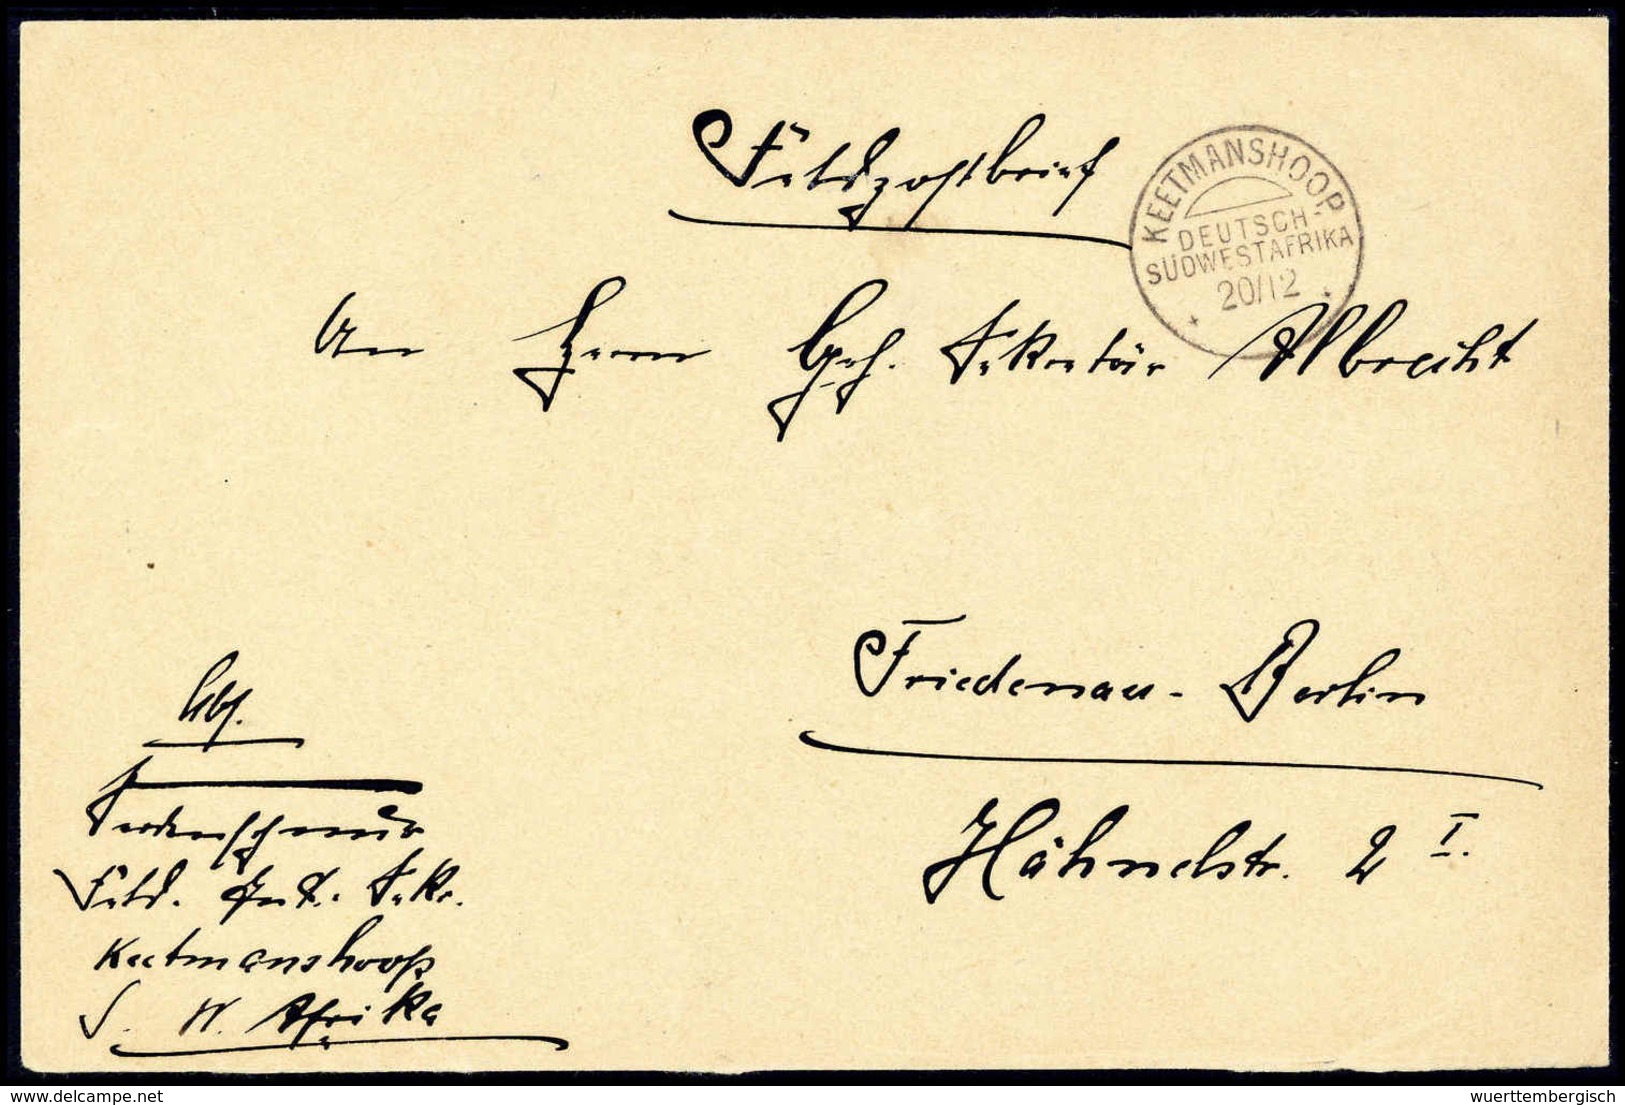 Feldpostbrief
KEETMANSHOOP
DEUTSCH-
SÜDWESTAFRIKA
20/12
An Herrn Geh. Sekretär Albrecht
Friedenau-Berlin
Hähnelstr. 2 I.
Abs.
Feld. Int. Sekr.
Keetmanshoop
S. W. Afrika
delcampe.net
wuerttembergisch